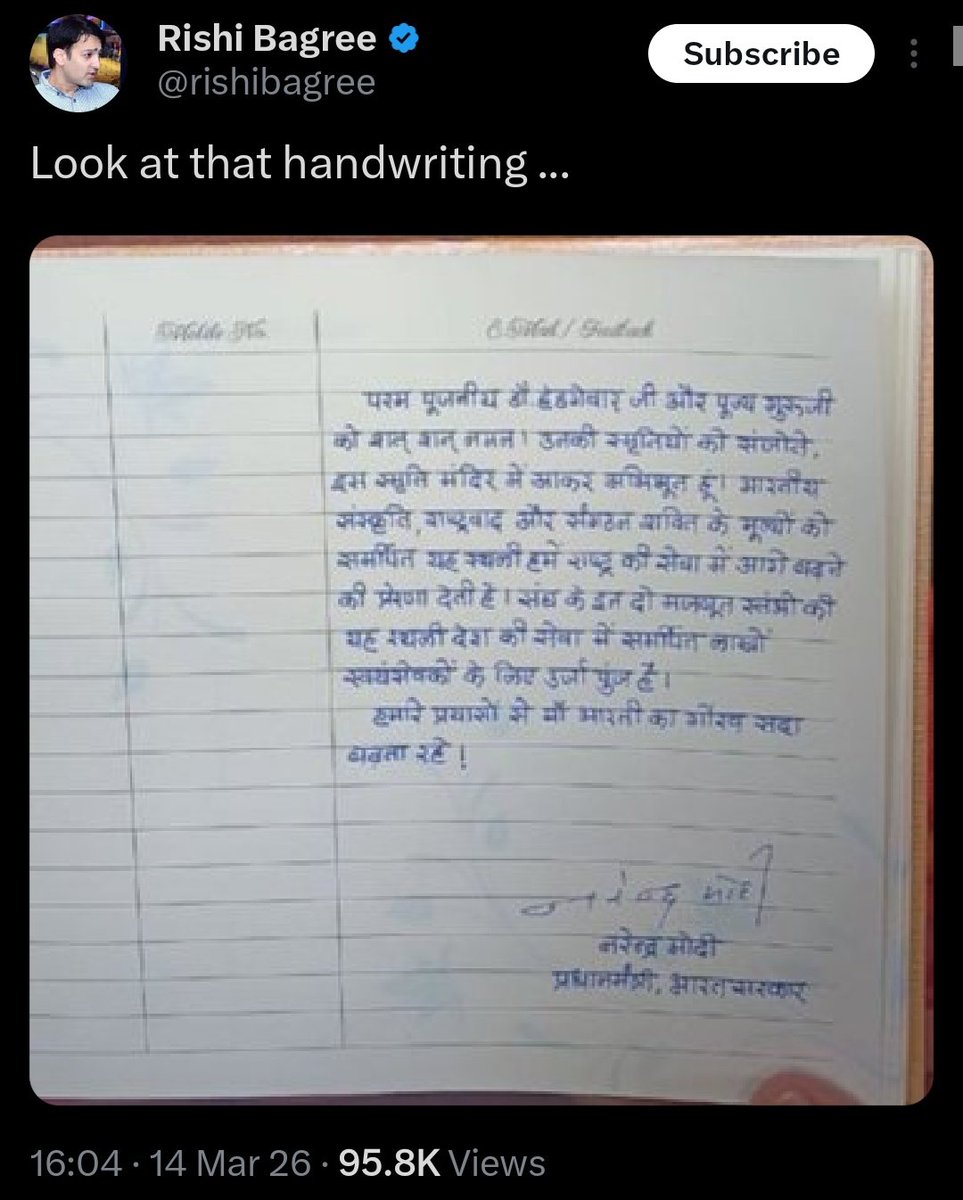 Rishi Bagree
@rishibagree
Subscribe
Look at that handwriting ...
परम पूजनीय डॉ हेडगेवार जी और पूज्य गुरूजी
को शत् शत् नमन। उनकी स्मृतियों को संजोते,
इस स्मृति मंदिर में आकर अभिभूत हूं। भारतीय
संस्कृति, राष्ट्रवाद और संगठन शक्ति के मूल्यों को
समर्पित यह स्थली हमें राष्ट्र की सेवा में आगे बढ़ने
की प्रेरणा देती है। संघ के इन दो मजबूत स्तंभों की
यह स्थली देश की सेवा में समर्पित लाखों
स्वयंसेवकों के लिए उर्जा पुंज है।
हमारे प्रयासों से माँ भारती का गौरव सदा
बढ़ता रहे!
नरेन्द्र मोदी
नरेन्द्र मोदी
प्रधानमंत्री, भारत सरकार
16:04 · 14 Mar 26 · 95.8K Views